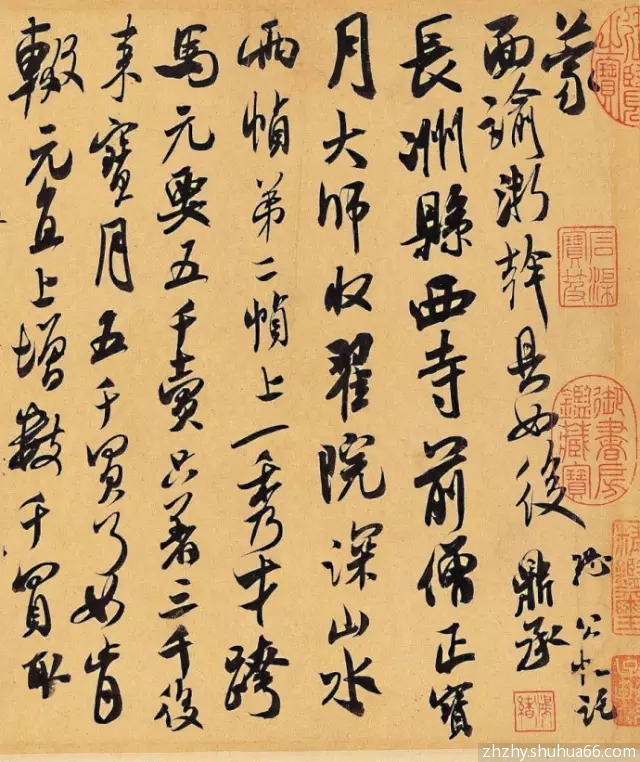 蒙
面諭浙幹具如後
隰公 記
鼎承
長洲縣西寺前僧正寶
月大師收翟院深山水
兩幀弟二幀上一秀才跨
馬元要五千賣只著三千後
來寶月五千買了如肯
輟元直上增數千買取
石渠寶笈
御書房鑑藏寶
zhzhy.shuhua66.com